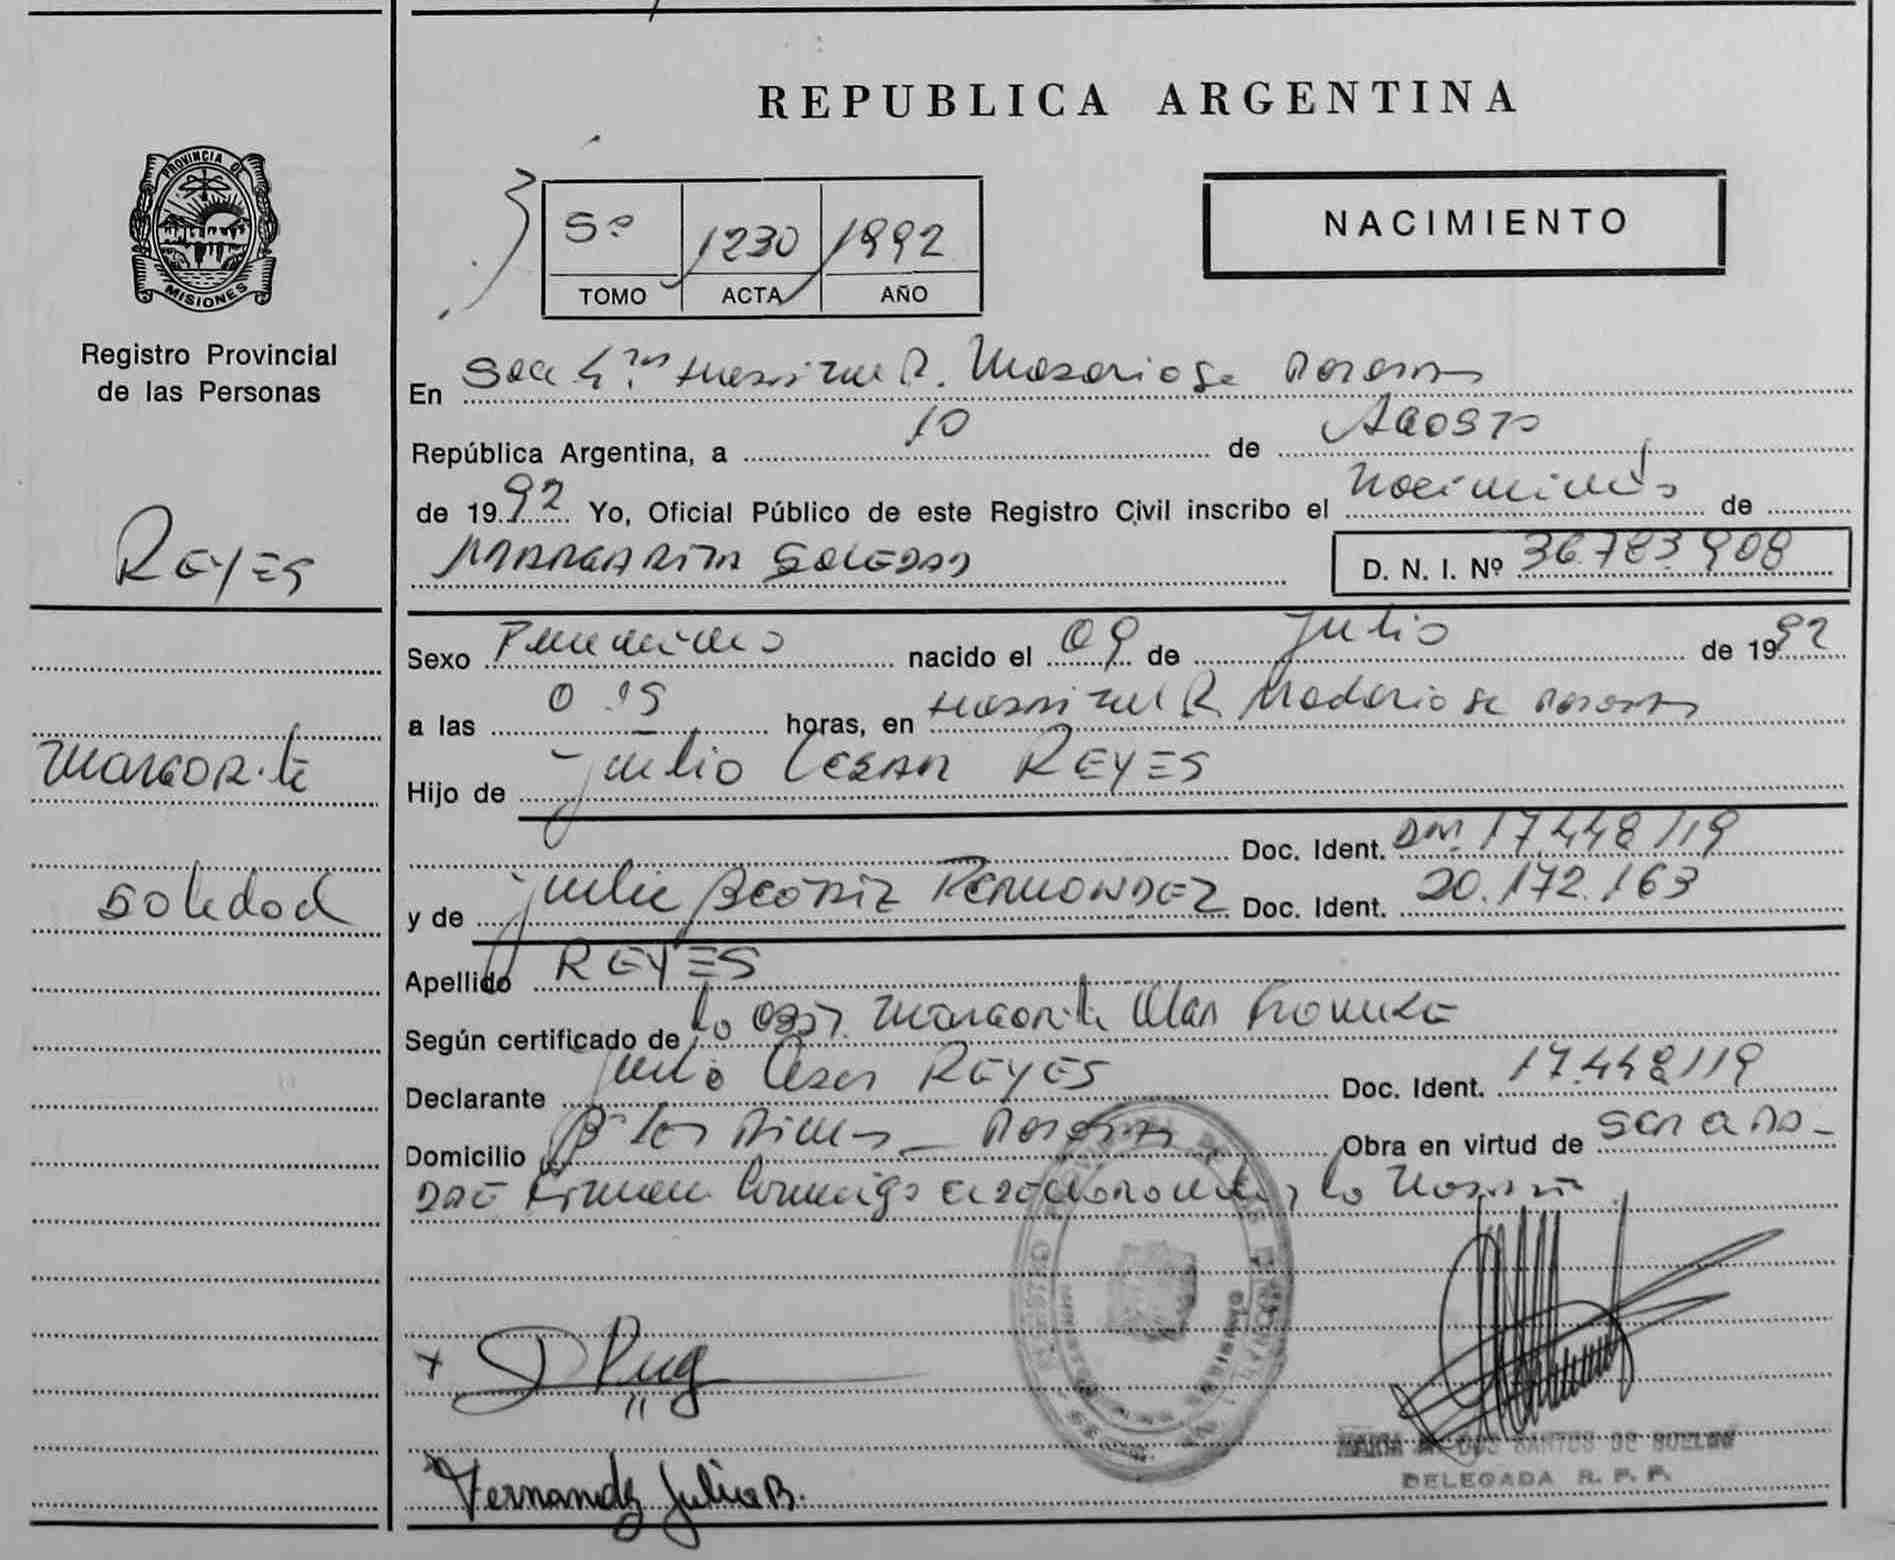 PROVINCIA DE
MISIONES
Registro Provincial
de las Personas
REYES
Margarita
Soledad
REPUBLICA ARGENTINA
NACIMIENTO
5º 1230 1992
TOMO ACTA AÑO
En Hospital R. Madariaga Posadas
República Argentina, a 10 de Agosto
de 1992 Yo, Oficial Público de este Registro Civil inscribo el Nacimiento de
MARGARITA SOLEDAD D. N. I. Nº 36.783.908
Sexo Femenino nacido el 09 de Julio de 1992
a las 0.15 horas, en Hospital R. Madariaga Posadas
Hijo de Julio Cesar REYES
Doc. Ident. DNI. 17.448.119
y de Julia Beatriz Fernandez Doc. Ident. 20.172.163
Apellido REYES
Según certificado de la Obst. Margarita
Declarante Julio Cesar REYES Doc. Ident. 17.448.119
Domicilio Posadas Obra en virtud de ser
Firman Conmigo la
Fernandez Julia B.
MARIA DOS SANTOS DE
DELEGADA R. P. P.